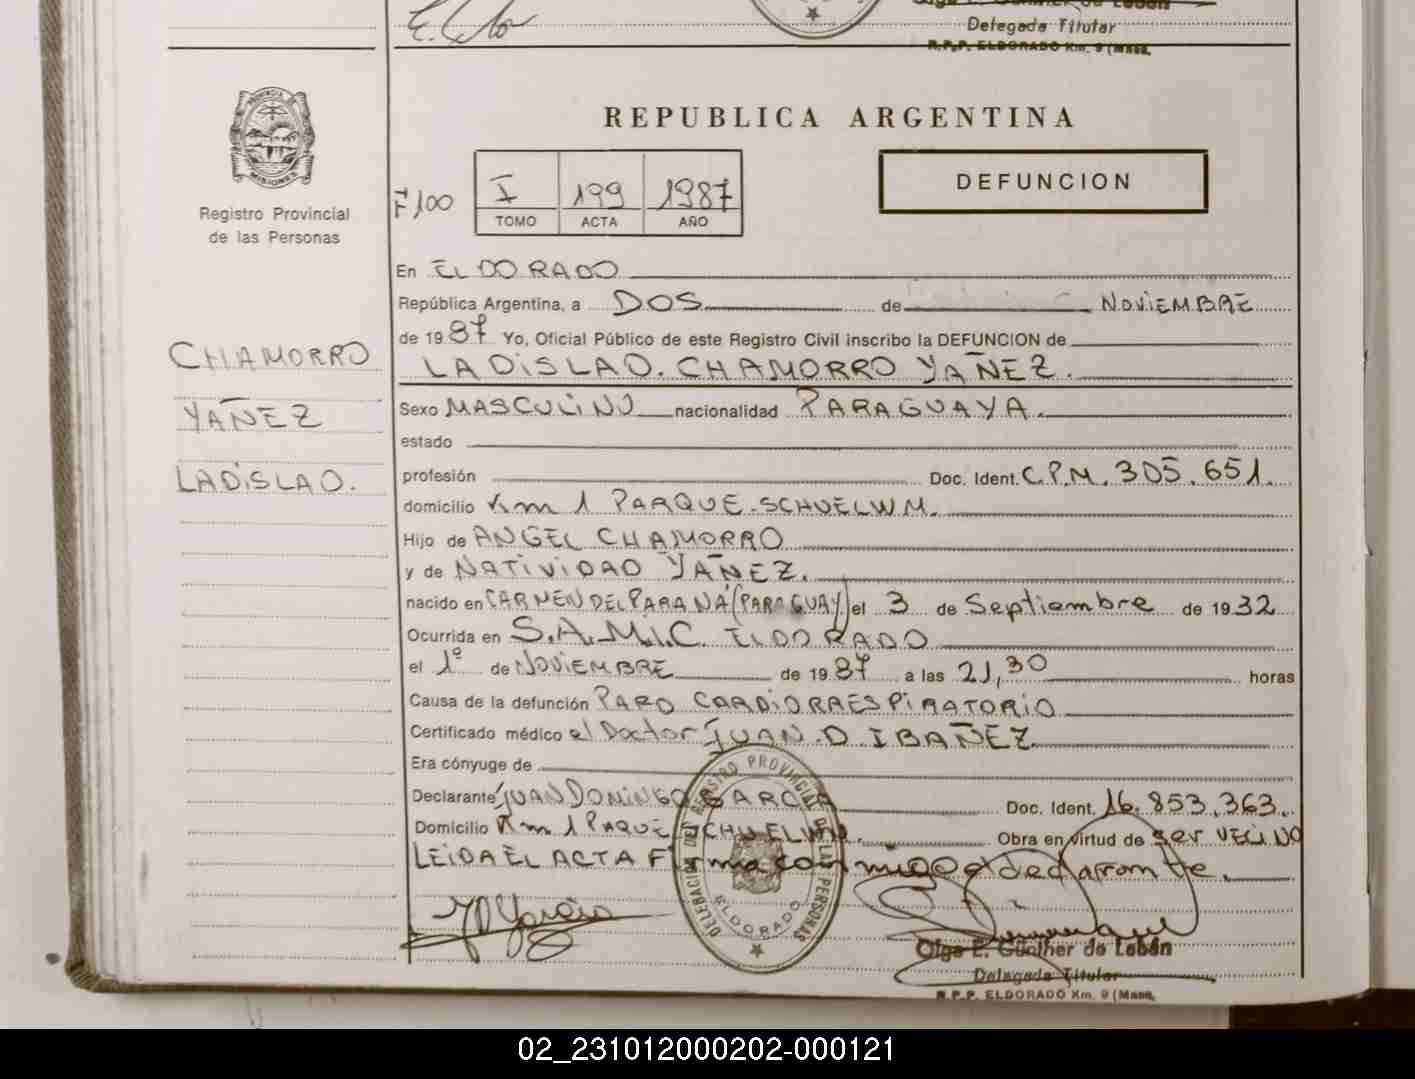 Delegada Titular
R.P.P. ELDORADO Km. 9 (Mnes.
PROVINCIA DE
MISIONES
Registro Provincial
de las Personas
CHAMORRO
YAÑEZ
LADISLAO.
REPUBLICA ARGENTINA
F100
I 199 1987
TOMO ACTA AÑO
DEFUNCION
En ELDORADO
República Argentina, a DOS de NOVIEMBRE
de 1987 Yo, Oficial Público de este Registro Civil inscribo la DEFUNCION de
LADISLAO. CHAMORRO YAÑEZ.
Sexo MASCULINO nacionalidad PARAGUAYA.
estado
profesión Doc. Ident. C.P.M. 305.651.
domicilio Km 1 PARQUE-SCHUELWM.
Hijo de ANGEL CHAMORRO
y de NATIVIDAD YAÑEZ.
nacido en CARMEN DEL PARANÁ (PARAGUAY) el 3 de Septiembre de 1932
Ocurrida en S.A.M.I.C. ELDORADO
el 1º de NOVIEMBRE de 1987 a las 21,30 horas
Causa de la defunción PARO CARDIORRESPIRATORIO
Certificado médico el Doctor JUAN.D IBAÑEZ
Era cónyuge de
Declarante JUAN DOMINGO GARCIA Doc. Ident. 16.853.363.
Domicilio Km 1 PAQUE SCHUELWM. Obra en virtud de ser VECINO
LEIDA EL ACTA Firma conmigo el declarante.
DELEGACION DEL REGISTRO PROVINCIAL DE LAS PERSONAS
ELDORADO
Olga E. Günther de Lebán
Delegada Titular
R.P.P. ELDORADO Km. 9 (Mnes.
02_231012000202-000121